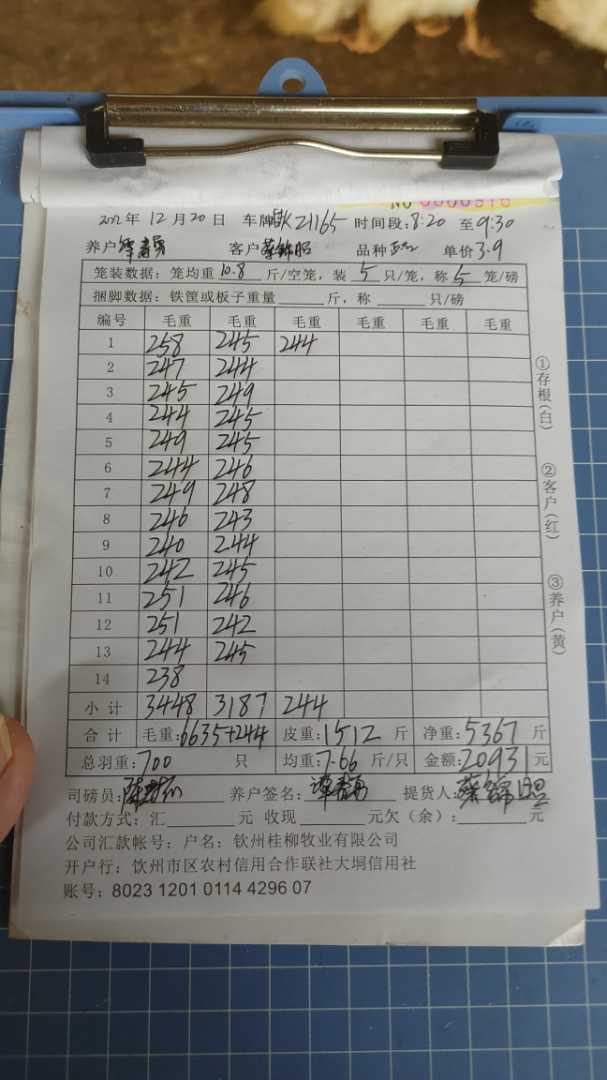 No 0000916
2022年 12月20日 车牌 K21165 时间段:8:20 至9:30
养户 客户 品种 单价3.9
笼装数据：笼均重 10.8 斤/空笼，装 5 只/笼，称 5 笼/磅
捆脚数据：铁筐或板子重量 斤，称 只/磅
编号 毛重 毛重 毛重 毛重 毛重 毛重
1 258 245 244
2 247 244
3 245 249
4 244 245
5 249 245
6 244 246
7 249 248
8 246 243
9 240 244
10 242 245
11 251 246
12 251 242
13 244 245
14 238
小计 3448 3187 244
合计 毛重:6635+244 皮重:1512 斤 净重:5367 斤
总羽重:700 只 均重:7.66 斤/只 金额:20931 元
司磅员: 养户签名: 提货人:
付款方式：汇 元 收现 元欠（余）： 元
公司汇款帐号：户名：钦州桂柳牧业有限公司
开户行：钦州市区农村信用合作联社大垌信用社
账号：8023 1201 0114 4296 07
①存根(白)
②客户(红)
③养户(黄)